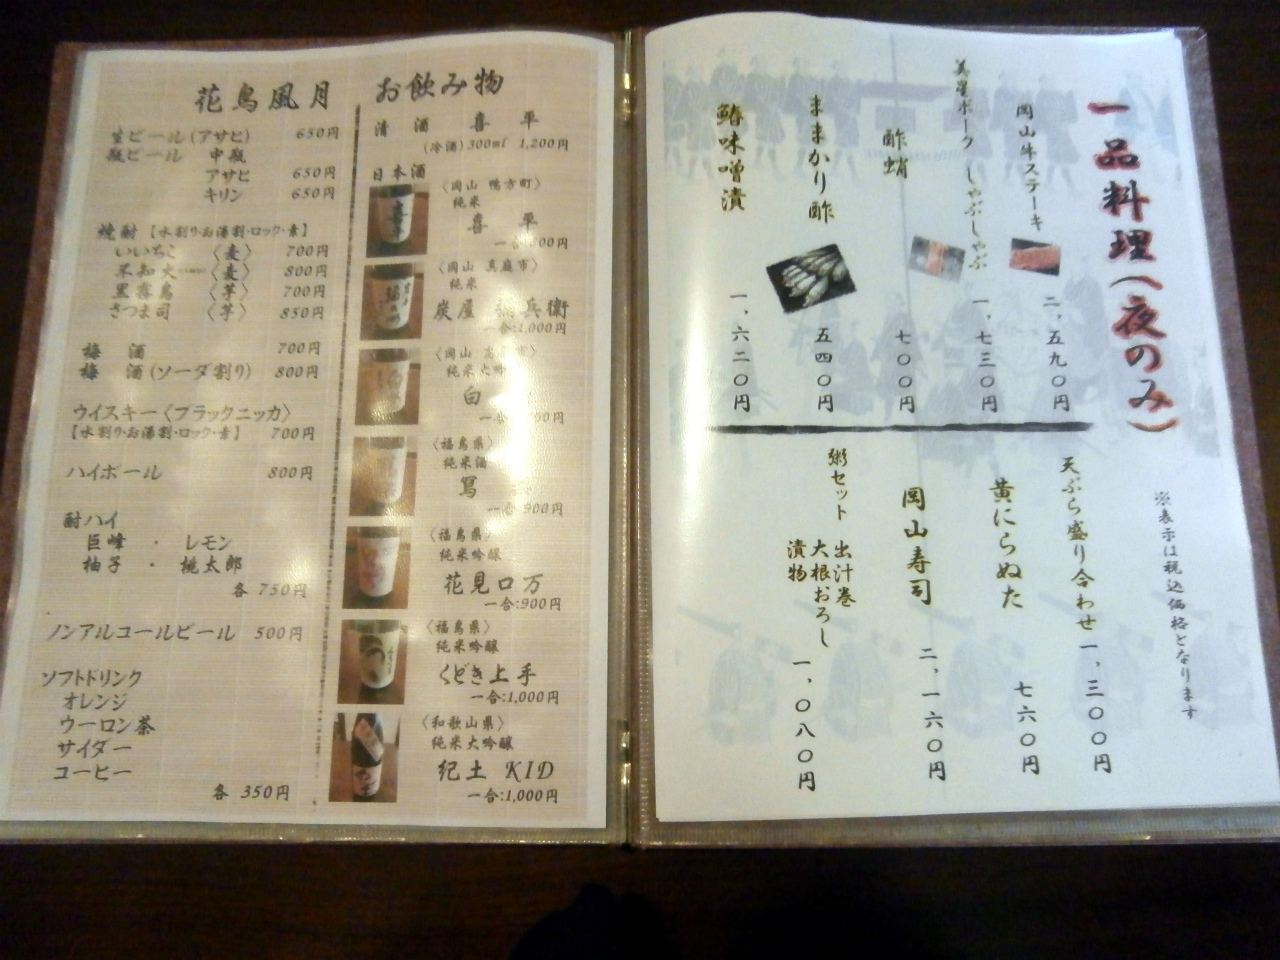 花鳥風月 お飲み物
生ビール(アサヒ) 650円
瓶ビール 中瓶
アサヒ 650円
キリン 650円
焼酎【水割り・お湯割・ロック・素】
いいちこ 〈麦〉 700円
不知火 〈麦〉 800円
黒霧島 〈芋〉 700円
さつま司 〈芋〉 850円
梅酒 700円
梅酒(ソーダ割り) 800円
ウイスキー〈ブラックニッカ〉
【水割り・お湯割・ロック・素】 700円
ハイボール 800円
酎ハイ
巨峰 ・ レモン
柚子 ・ 桃太郎
各 750円
ノンアルコールビール 500円
ソフトドリンク
オレンジ
ウーロン茶
サイダー
コーヒー
各 350円
清酒 喜平
(冷酒)300ml 1,200円
日本酒
〈岡山 鴨方町〉
純米
喜平
〈岡山 真庭市〉
純米
炭屋 兵衛
一合:1,000円
〈岡山
純米大吟
白
〈福島県〉
純米酒
寫
一合 900円
〈福島県〉
純米吟醸
花見ロ万
一合:900円
〈福島県〉
純米吟醸
くどき上手
一合:1,000円
〈和歌山県〉
純米大吟醸
紀土 KID
一合:1,000円
一品料理(夜のみ)
※表示は税込価格となります
岡山牛ステーキ 二、五九〇円
美星ポーク しゃぶしゃぶ 一、七三〇円
酢蛸 七〇〇円
ままかり酢 五四〇円
鰆味噌漬 一、六二〇円
天ぷら盛り合わせ 一、三〇〇円
黄にらぬた 七六〇円
岡山寿司 二、一六〇円
粥セット 出汁巻
大根おろし
漬物
一、〇八〇円